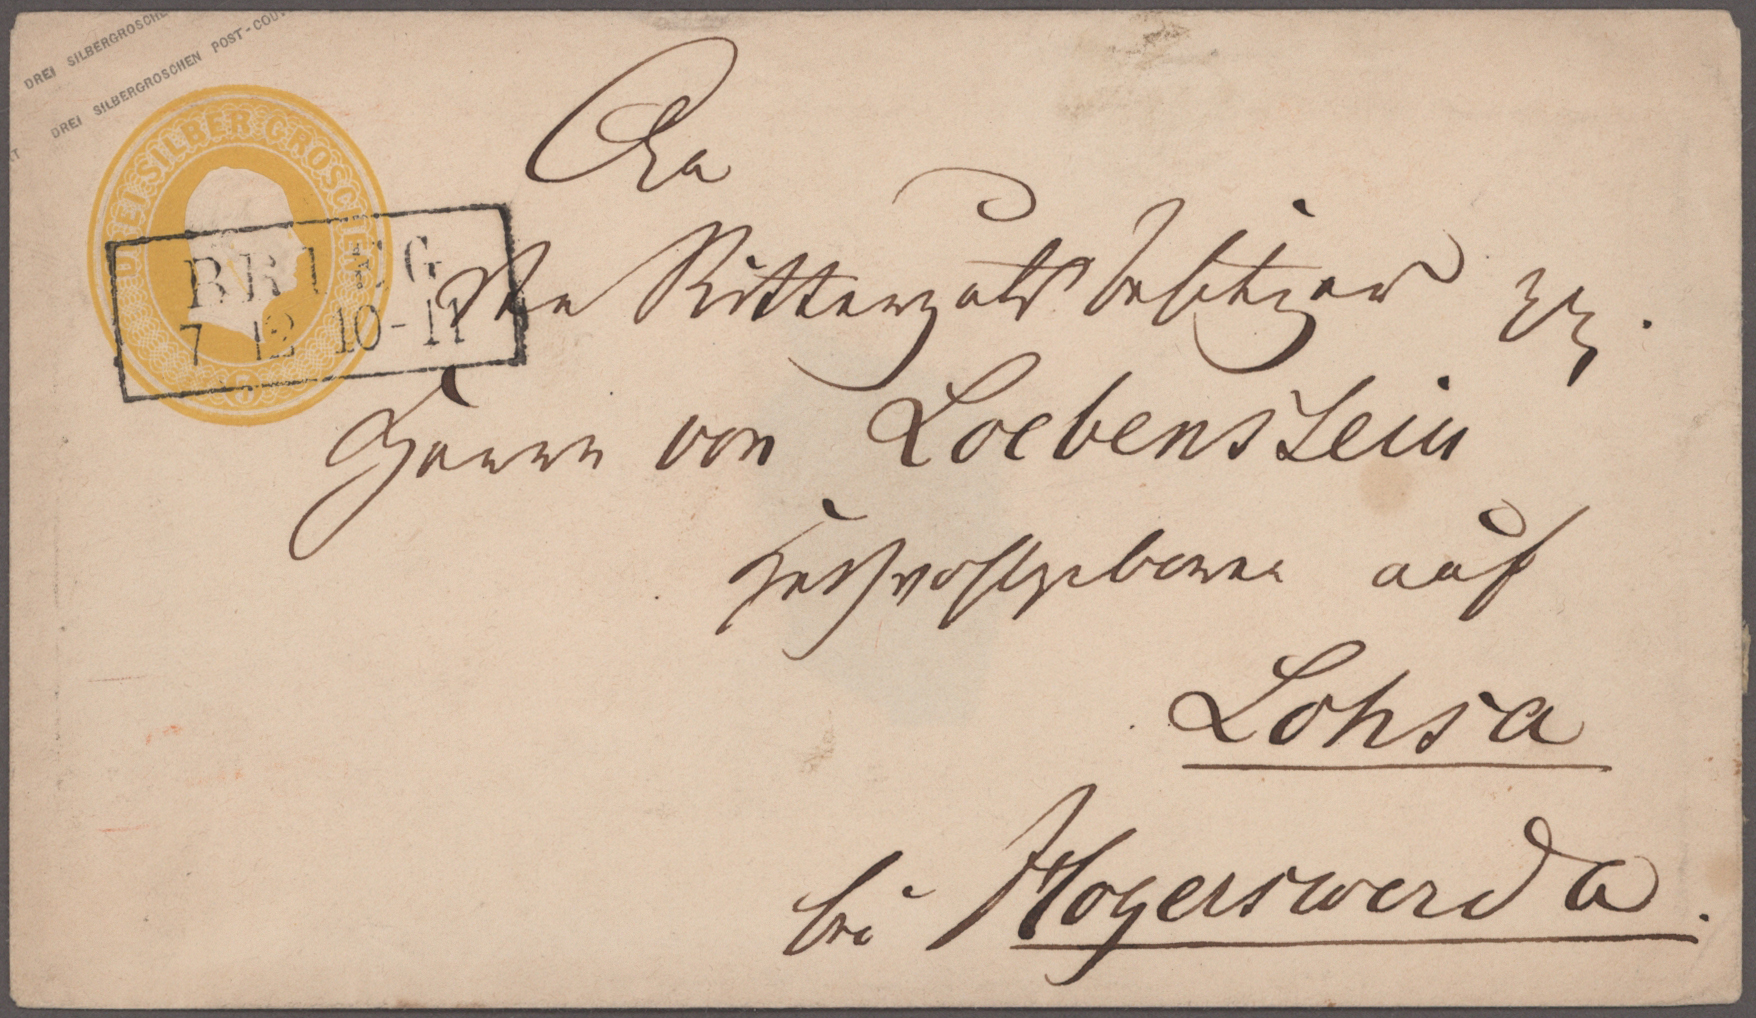 DREI SILBERGROSCHEN
DREI SILBERGROSCHEN POST-COUV
DREI SILBER GROSCHEN
3
BRIEG
7 12 10-11
An
den Rittergutsbesitzer
Herrn von Loebenstein
Hochwohlgeboren auf
Lohsa
bei Hoyerswerda.